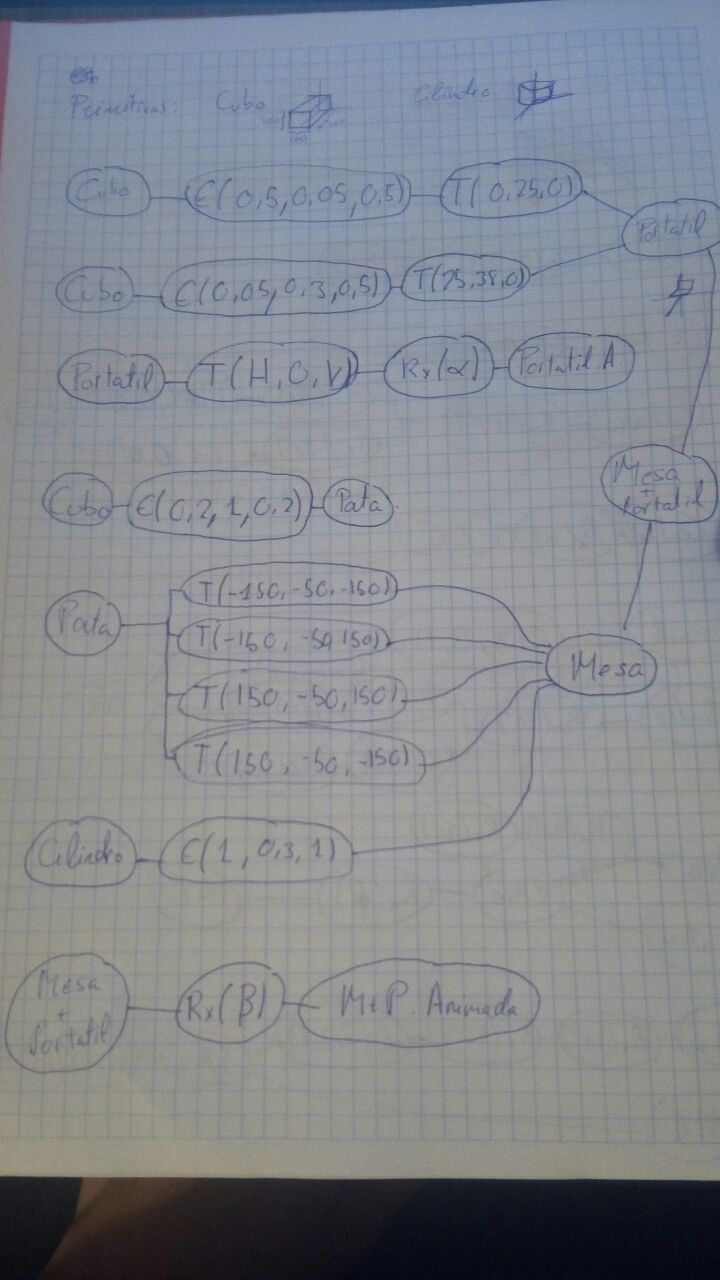 Primitivas: Cubo 100 100 Cilindro
Cubo E(0,5,0,05,0,5) T(0,25,0)
Portatil
Cubo E(0,05,0,3,0,5) T(25,38,0)
Portatil T(H,0,V) Rx(α) Portatil A
Cubo E(0,2,1,0,2) Pata
Mesa
+
Portatil
T(-150,-50,-150)
Pata
T(-150,-50,150)
Mesa
T(150,-50,150)
T(150,-50,-150)
Cilindro E(1,0,3,1)
Mesa
+
Portatil
Rx(β) M+P. Animada